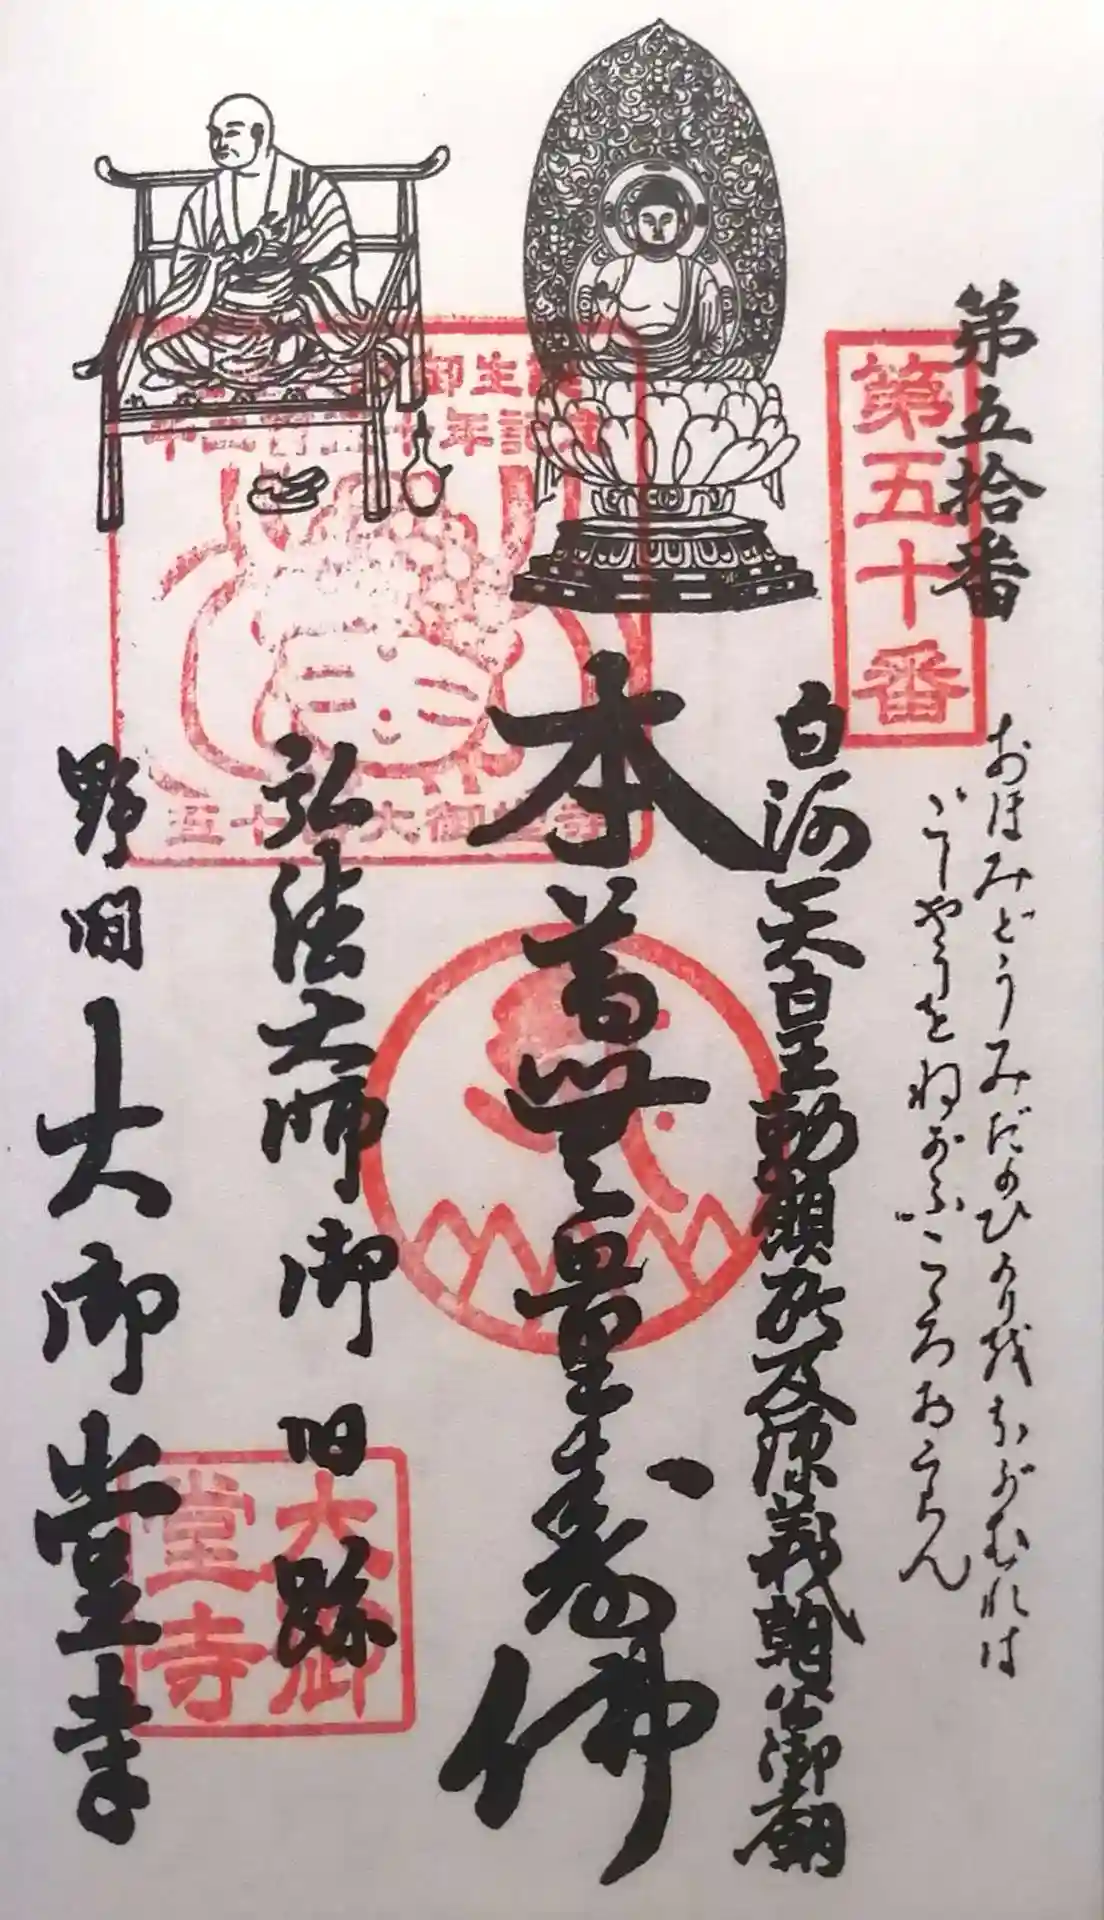 第五拾番
第五十番
おほみどうみだのひかり越あがむれは
ごしやうをねがふこころおこらん
白河天皇勅願所及源義朝公御廟
本尊無量寿佛
弘法大師御旧跡
野間大御堂寺
御生誕
年記念
五十番大御堂寺
大御
堂寺